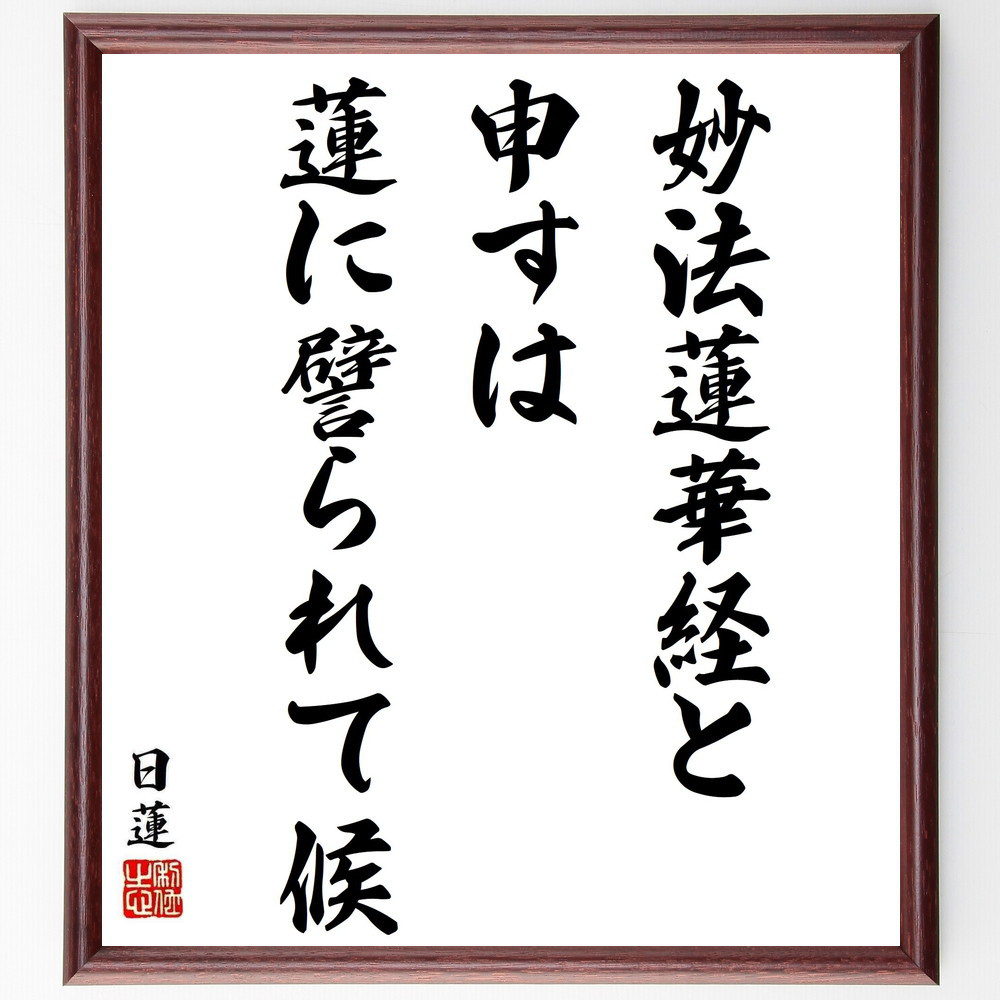 妙法蓮華経と
申すは
蓮に譬られて候
日蓮